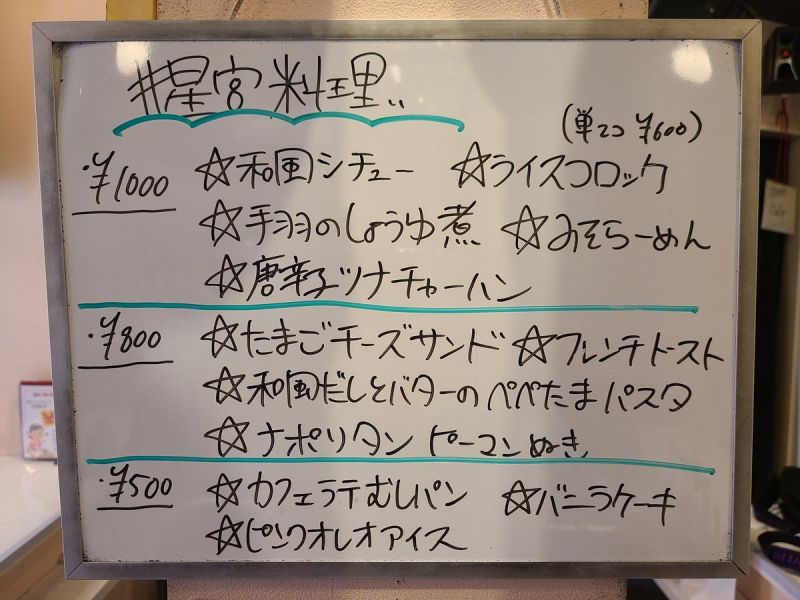 #星宮料理..
(単コ ¥600)
・¥1000 ☆和風シチュー ☆ライスコロッケ
☆手羽のしょうゆ煮 ☆みそらーめん
☆唐辛子ツナチャーハン
・¥800 ☆たまごチーズサンド ☆フレンチトースト
☆和風だしとバターのぺぺたまパスタ
☆ナポリタン ピーマンぬき
・¥500 ☆カフェラテむしパン ☆バニラケーキ
☆ピンクオレオアイス